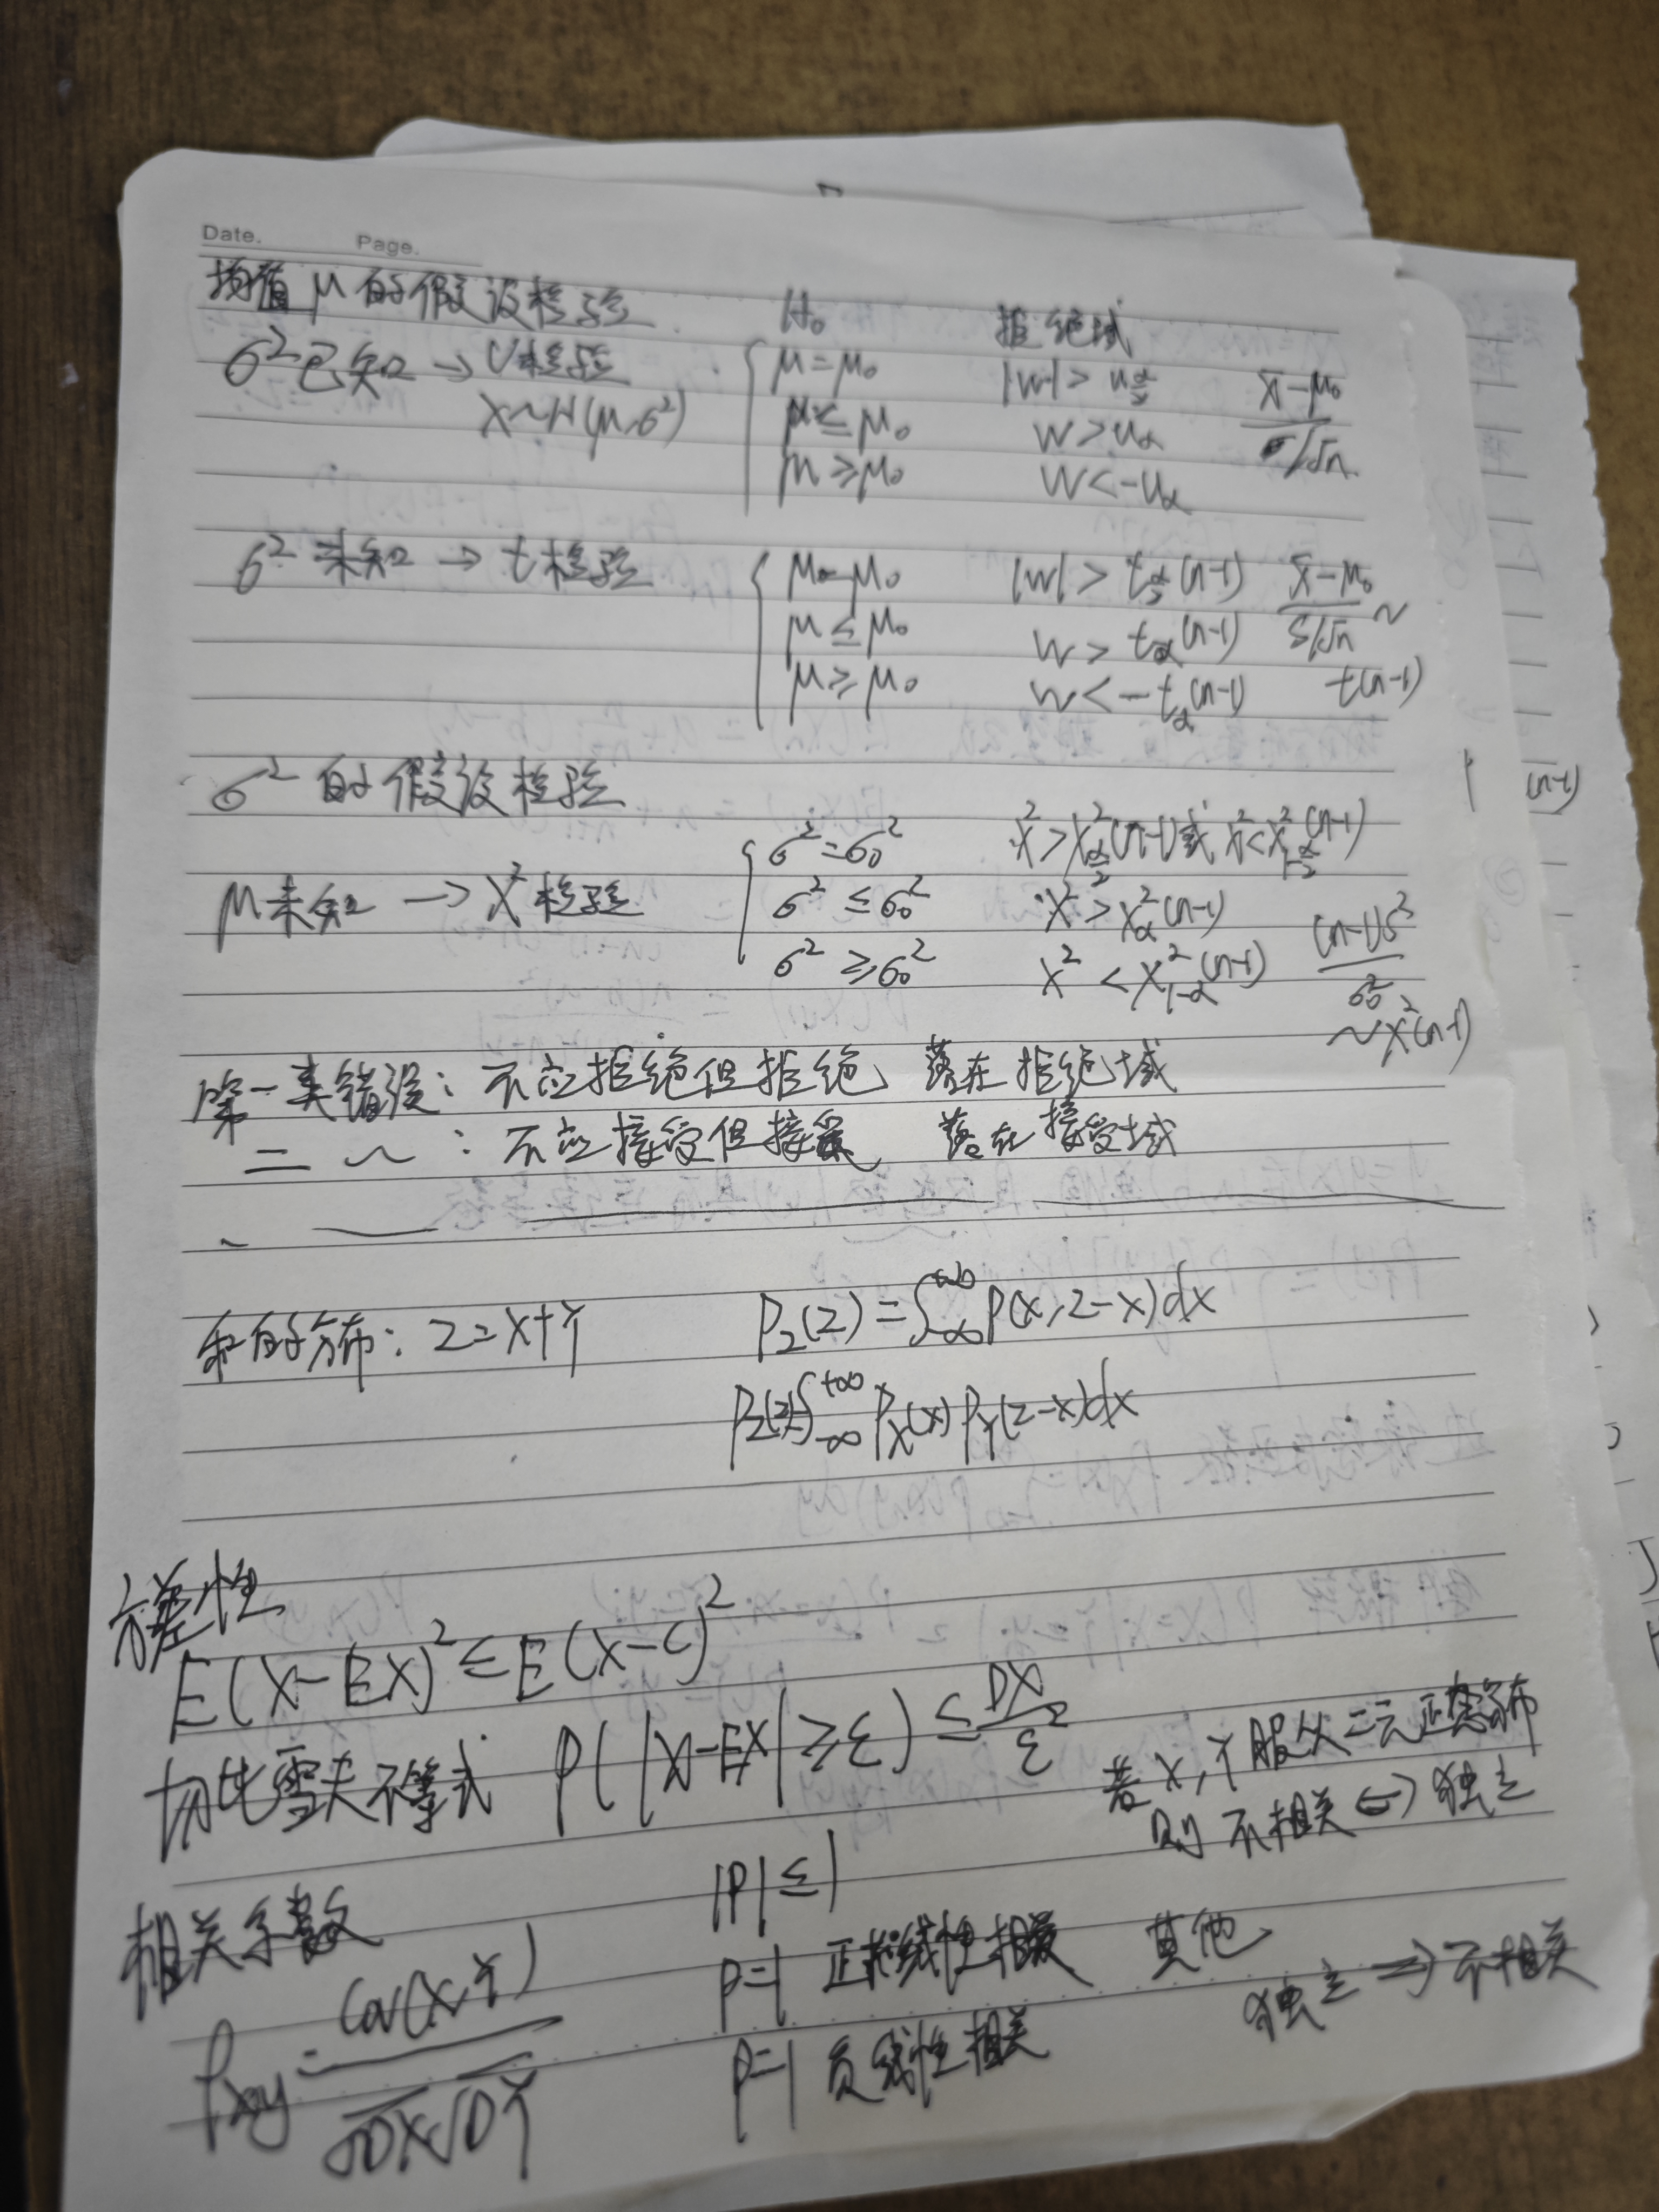 Date. Page.
均值μ的假设检验 H₀ 拒绝域
σ²已知→U检验 μ=μ₀ |W|>u_{α/2} (x̄-μ₀)/(σ/√n)
X~N(μ,σ²) μ≤μ₀ W>u_α
μ≥μ₀ W<-u_α
σ²未知→t检验 μ=μ₀ |W|>t_{α/2}(n-1) (x̄-μ₀)/(S/√n) ~
μ≤μ₀ W>t_α(n-1)
μ≥μ₀ W<-t_α(n-1) t(n-1)
σ²的假设检验
(n-1)
σ²=σ₀² χ²>χ²_{α/2}(n-1)或χ²<χ²_{1-α/2}(n-1)
μ未知→χ²检验 σ²≤σ₀² χ²>χ²_α(n-1) (n-1)S²/σ₀²
σ²≥σ₀² χ²<χ²_{1-α}(n-1) ~χ²(n-1)
第一类错误:不应拒绝但拒绝,落在拒绝域
二 ~ :不应接受但接受,落在接受域
和的分布:Z=X+Y P_Z(Z)=∫_{-∞}^{+∞}P(x,z-x)dx
P_Z(z)=∫_{-∞}^{+∞}P_X(x)P_Y(z-x)dx
方差性
E(X-EX)²≤E(X-C)²
切比雪夫不等式 P(|X-EX|≥ε)≤DX/ε²
若X,Y服从二元正态分布
则不相关⇔独立
相关系数 |ρ|≤1
ρ=1 正线性相关 其他
ρ_xy=Cov(X,Y)/(√DX√DY) 独立⇒不相关
ρ=-1 负线性相关